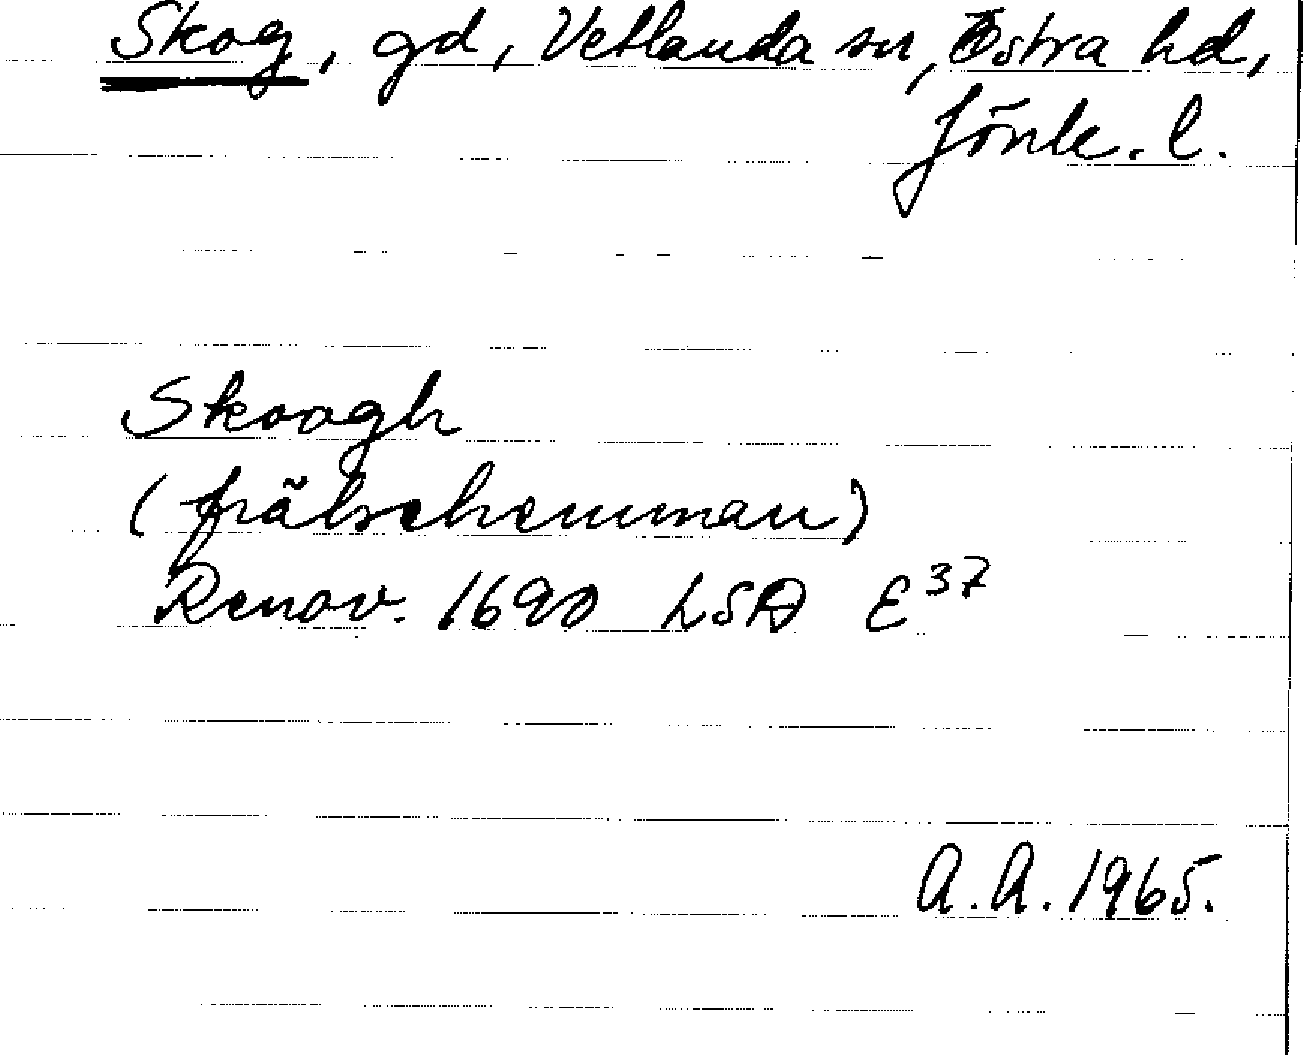 Skog, gd, Vetlanda sn, Östra hd,
Jönk. l.
Skoogh
(frälsehemman)
Renov. 1690 LSA E 37
A.A. 1965.